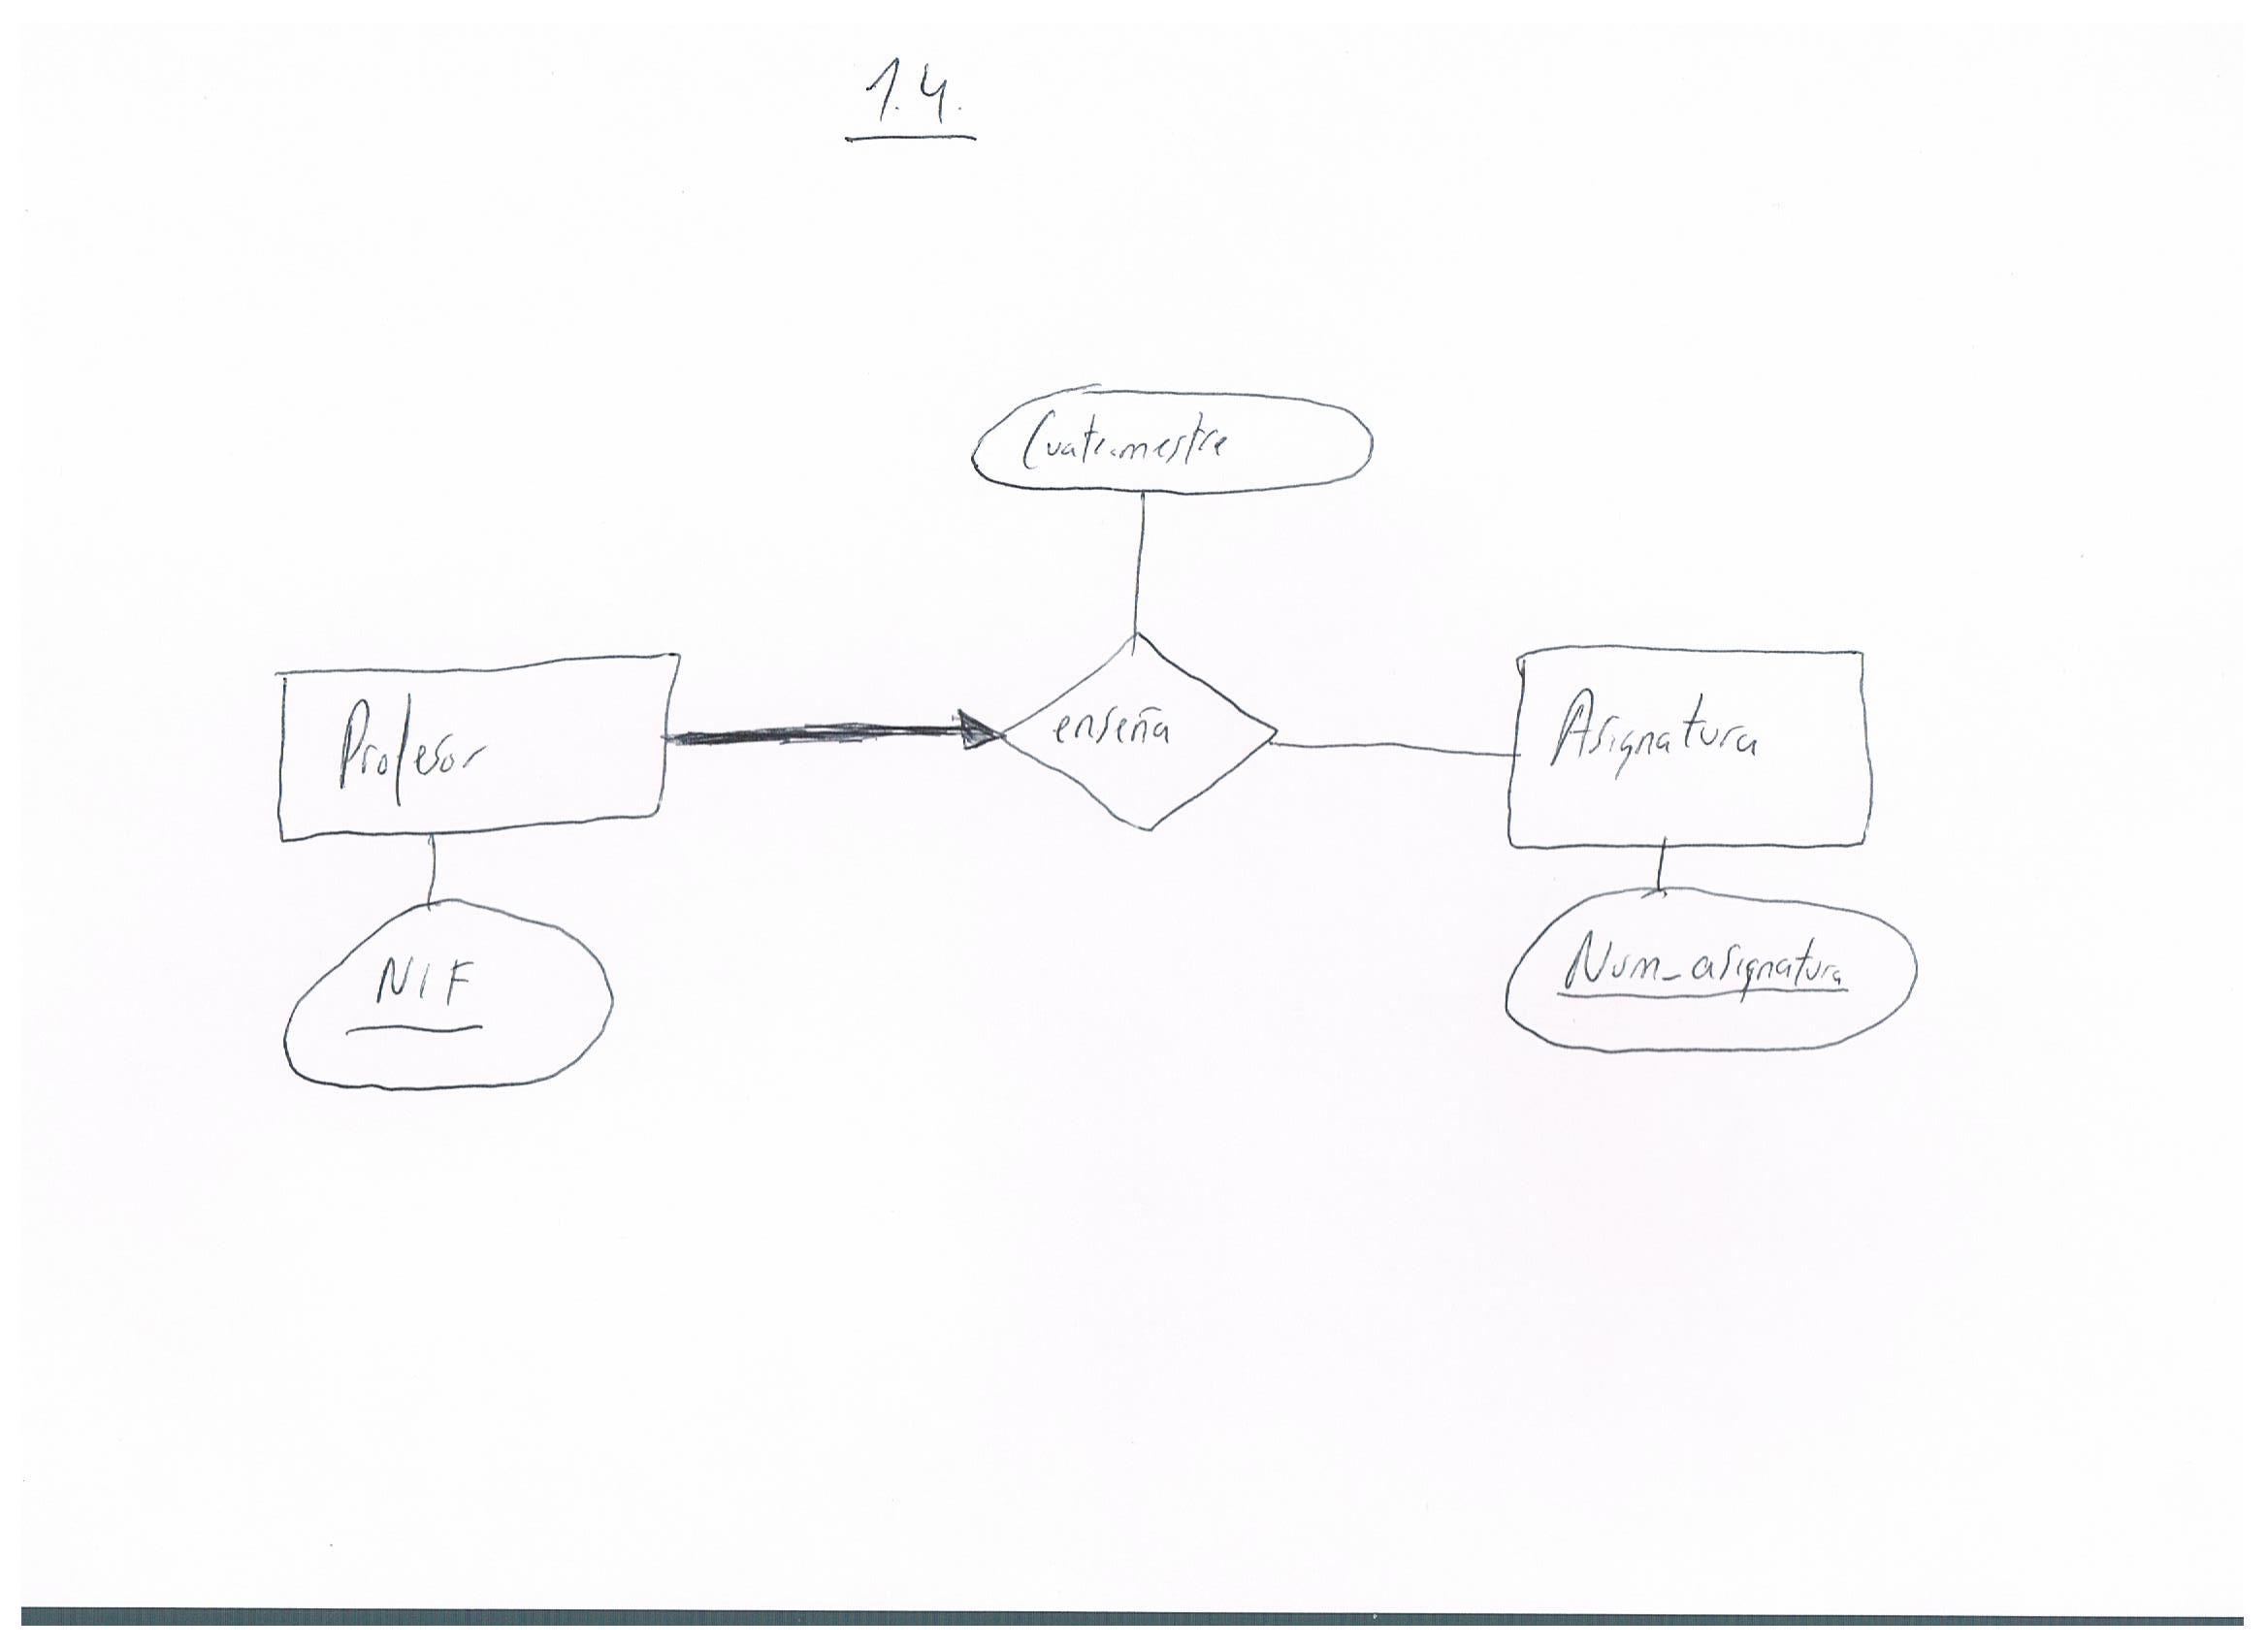 1.4.
Cuatrimestre
Profesor
enseña
Asignatura
NIF
Num_asignatura